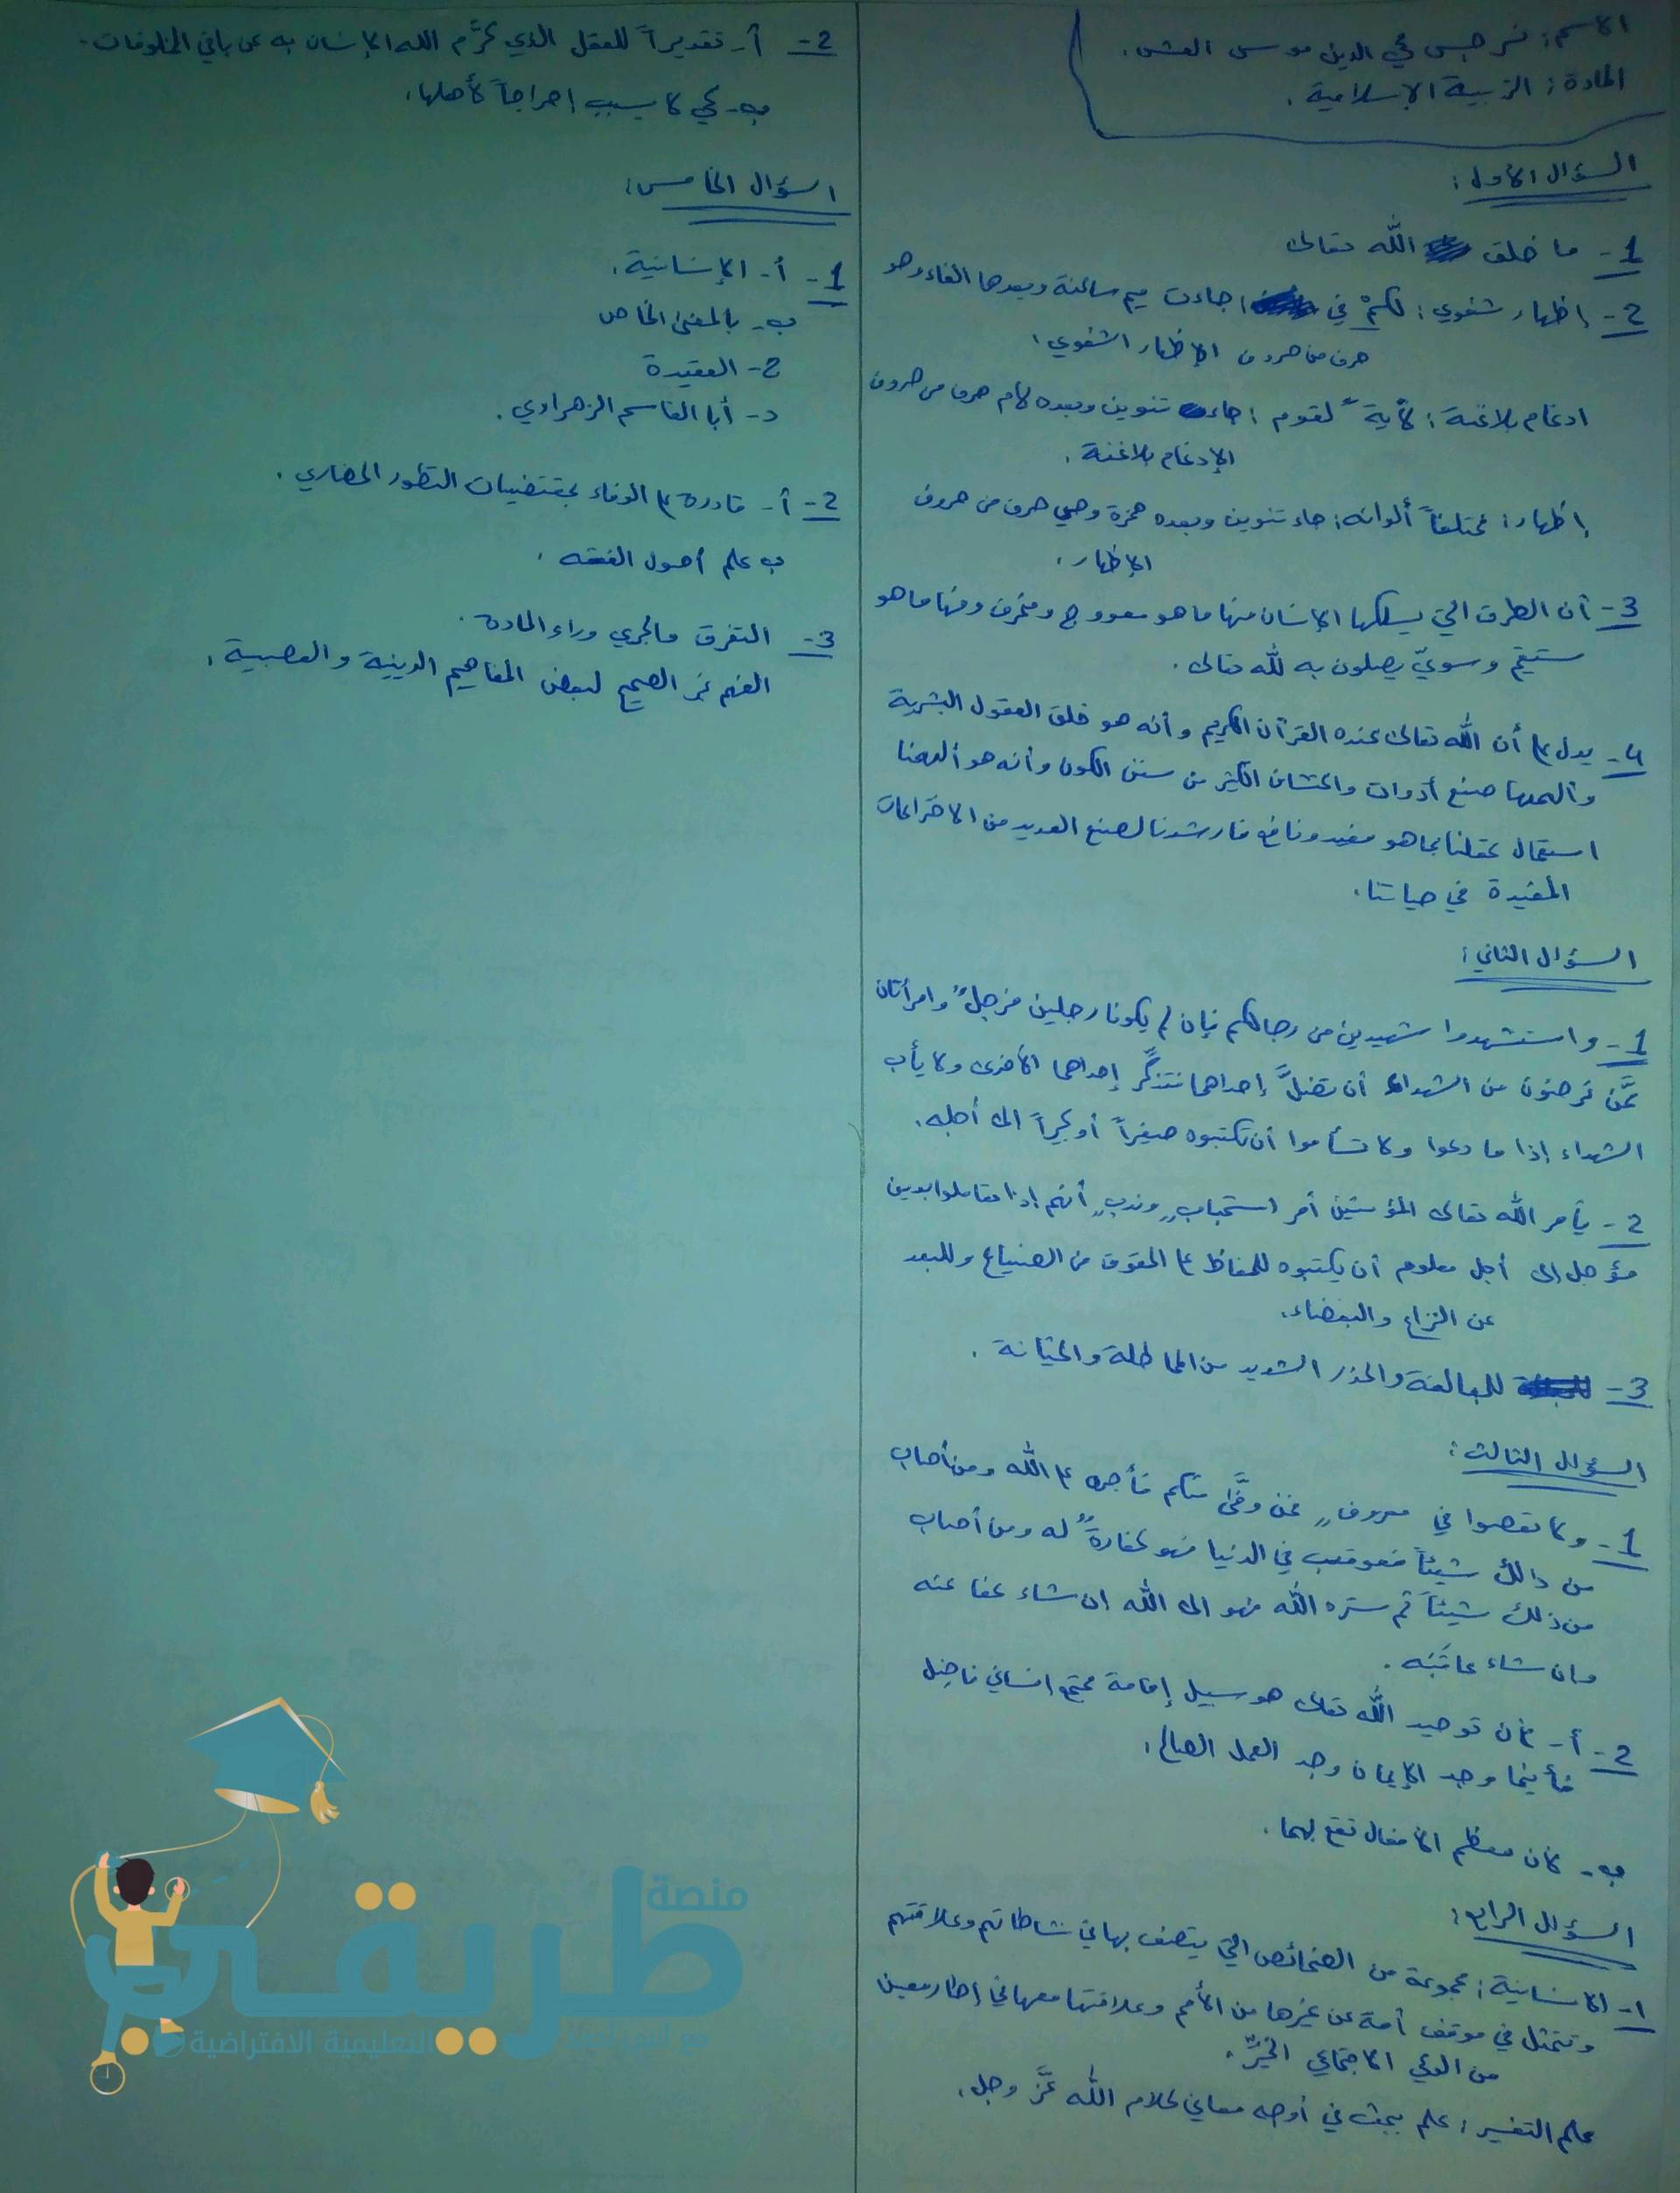 الاسم: نرجس محي الدين موسى العش.
المادة: التربية الإسلامية.
السؤال الأول:
1- ما خلق الله تعالى
2- إظهار شفوي: لكمْ في: جاءت ميم ساكنة وبعدها الفاء وهو
حرف من حروف الإظهار الشفوي.
ادغام بلاغنة: لآيةً لقوم: جاء تنوين وبعده لام حرف من حروف
الإدغام بلاغنة.
إظهار: مختلفاً ألوانه: جاء تنوين وبعده همزة وهي حرف من حروف
الإظهار.
3- أن الطرق التي يسلكها الإنسان منها ما هو معووج ومنحرف ومنها ما هو
مستقيم وسويّ يصلون به لله تعالى.
4- يدل على أن الله تعالى عنده القرآن الكريم وأنه هو خلق العقول البشرية
وألهمها صنع أدوات واكتشاف الكثير من سنن الكون وأنه هو ألهمنا
استعمال عقلنا بما هو مفيد ونافع فأرشدنا لصنع العديد من الاختراعات
المفيدة في حياتنا.
السؤال الثاني:
1- واستشهدوا شهيدين من رجالكم فإن لم يكونا رجلين فرجلٌ وامرأتان
ممَّن ترضون من الشهداء أن تضلَّ إحداهما فتذكِّر إحداهما الأخرى ولا يأب
الشهداء إذا ما دعوا ولا تسأموا أن تكتبوه صغيراً أو كبيراً الى أجله.
2- يأمر الله تعالى المؤمنين أمر استحبابٍ وندبٍ أنهم إذا تعاملوا بدين
مؤجل إلى أجل معلوم أن يكتبوه للحفاظ على الحقوق من الضياع وللبعد
عن النزاع والبغضاء.
3- للمبالغة والحذر الشديد من المماطلة والخيانة.
السؤال الثالث:
1- ولا تعصوا في معروفٍ فمن وفَّى منكم فأجره على الله ومن أصاب
من ذالك شيئاً فعوقب في الدنيا فهو كفارةٌ له ومن أصاب
من ذلك شيئاً ثم ستره الله فهو الى الله ان شاء عفا عنه
وان شاء عاقبَه.
2- أ- لأن توحيد الله تعالى هو سبيل إقامة مجتمع انساني فاضل
فأينما وجد الإيمان وجد العمل الصالح.
ب- لأن معظم الأفعال تقع بهما.
السؤال الرابع:
1- الانسانية: مجموعة من الخصائص التي يتصف بها في نشاطاتهم وعلاقتهم
وتتمثل في موقف أمة عن غيرها من الأمم وعلاقتها معها في إطار معين
من الوعي الاجتماعي الخيّرِ.
علم التفسير: علم يبحث في أوجه معاني كلام الله عزَّ وجل.
2- أ- تقديراً للعقل الذي كرَّم الله الإنسان به عن باقي المخلوقات.
ب- كي لا يسبب احراجاً لأهلها.
السؤال الخامس:
1- أ- الإنسانية.
ب- بالمعنى الخاص
ج- العقيدة
د- أبا القاسم الزهراوي.
2- أ- قادرة على الوفاء بمقتضيات التطور الحضاري.
ب علم أصول الفقه.
3- التفرق والجري وراء المادة.
الفهم غير الصحيح لبعض المفاهيم الدينية والعصبية.
منصة
طريقي
التعليمية الافتراضية